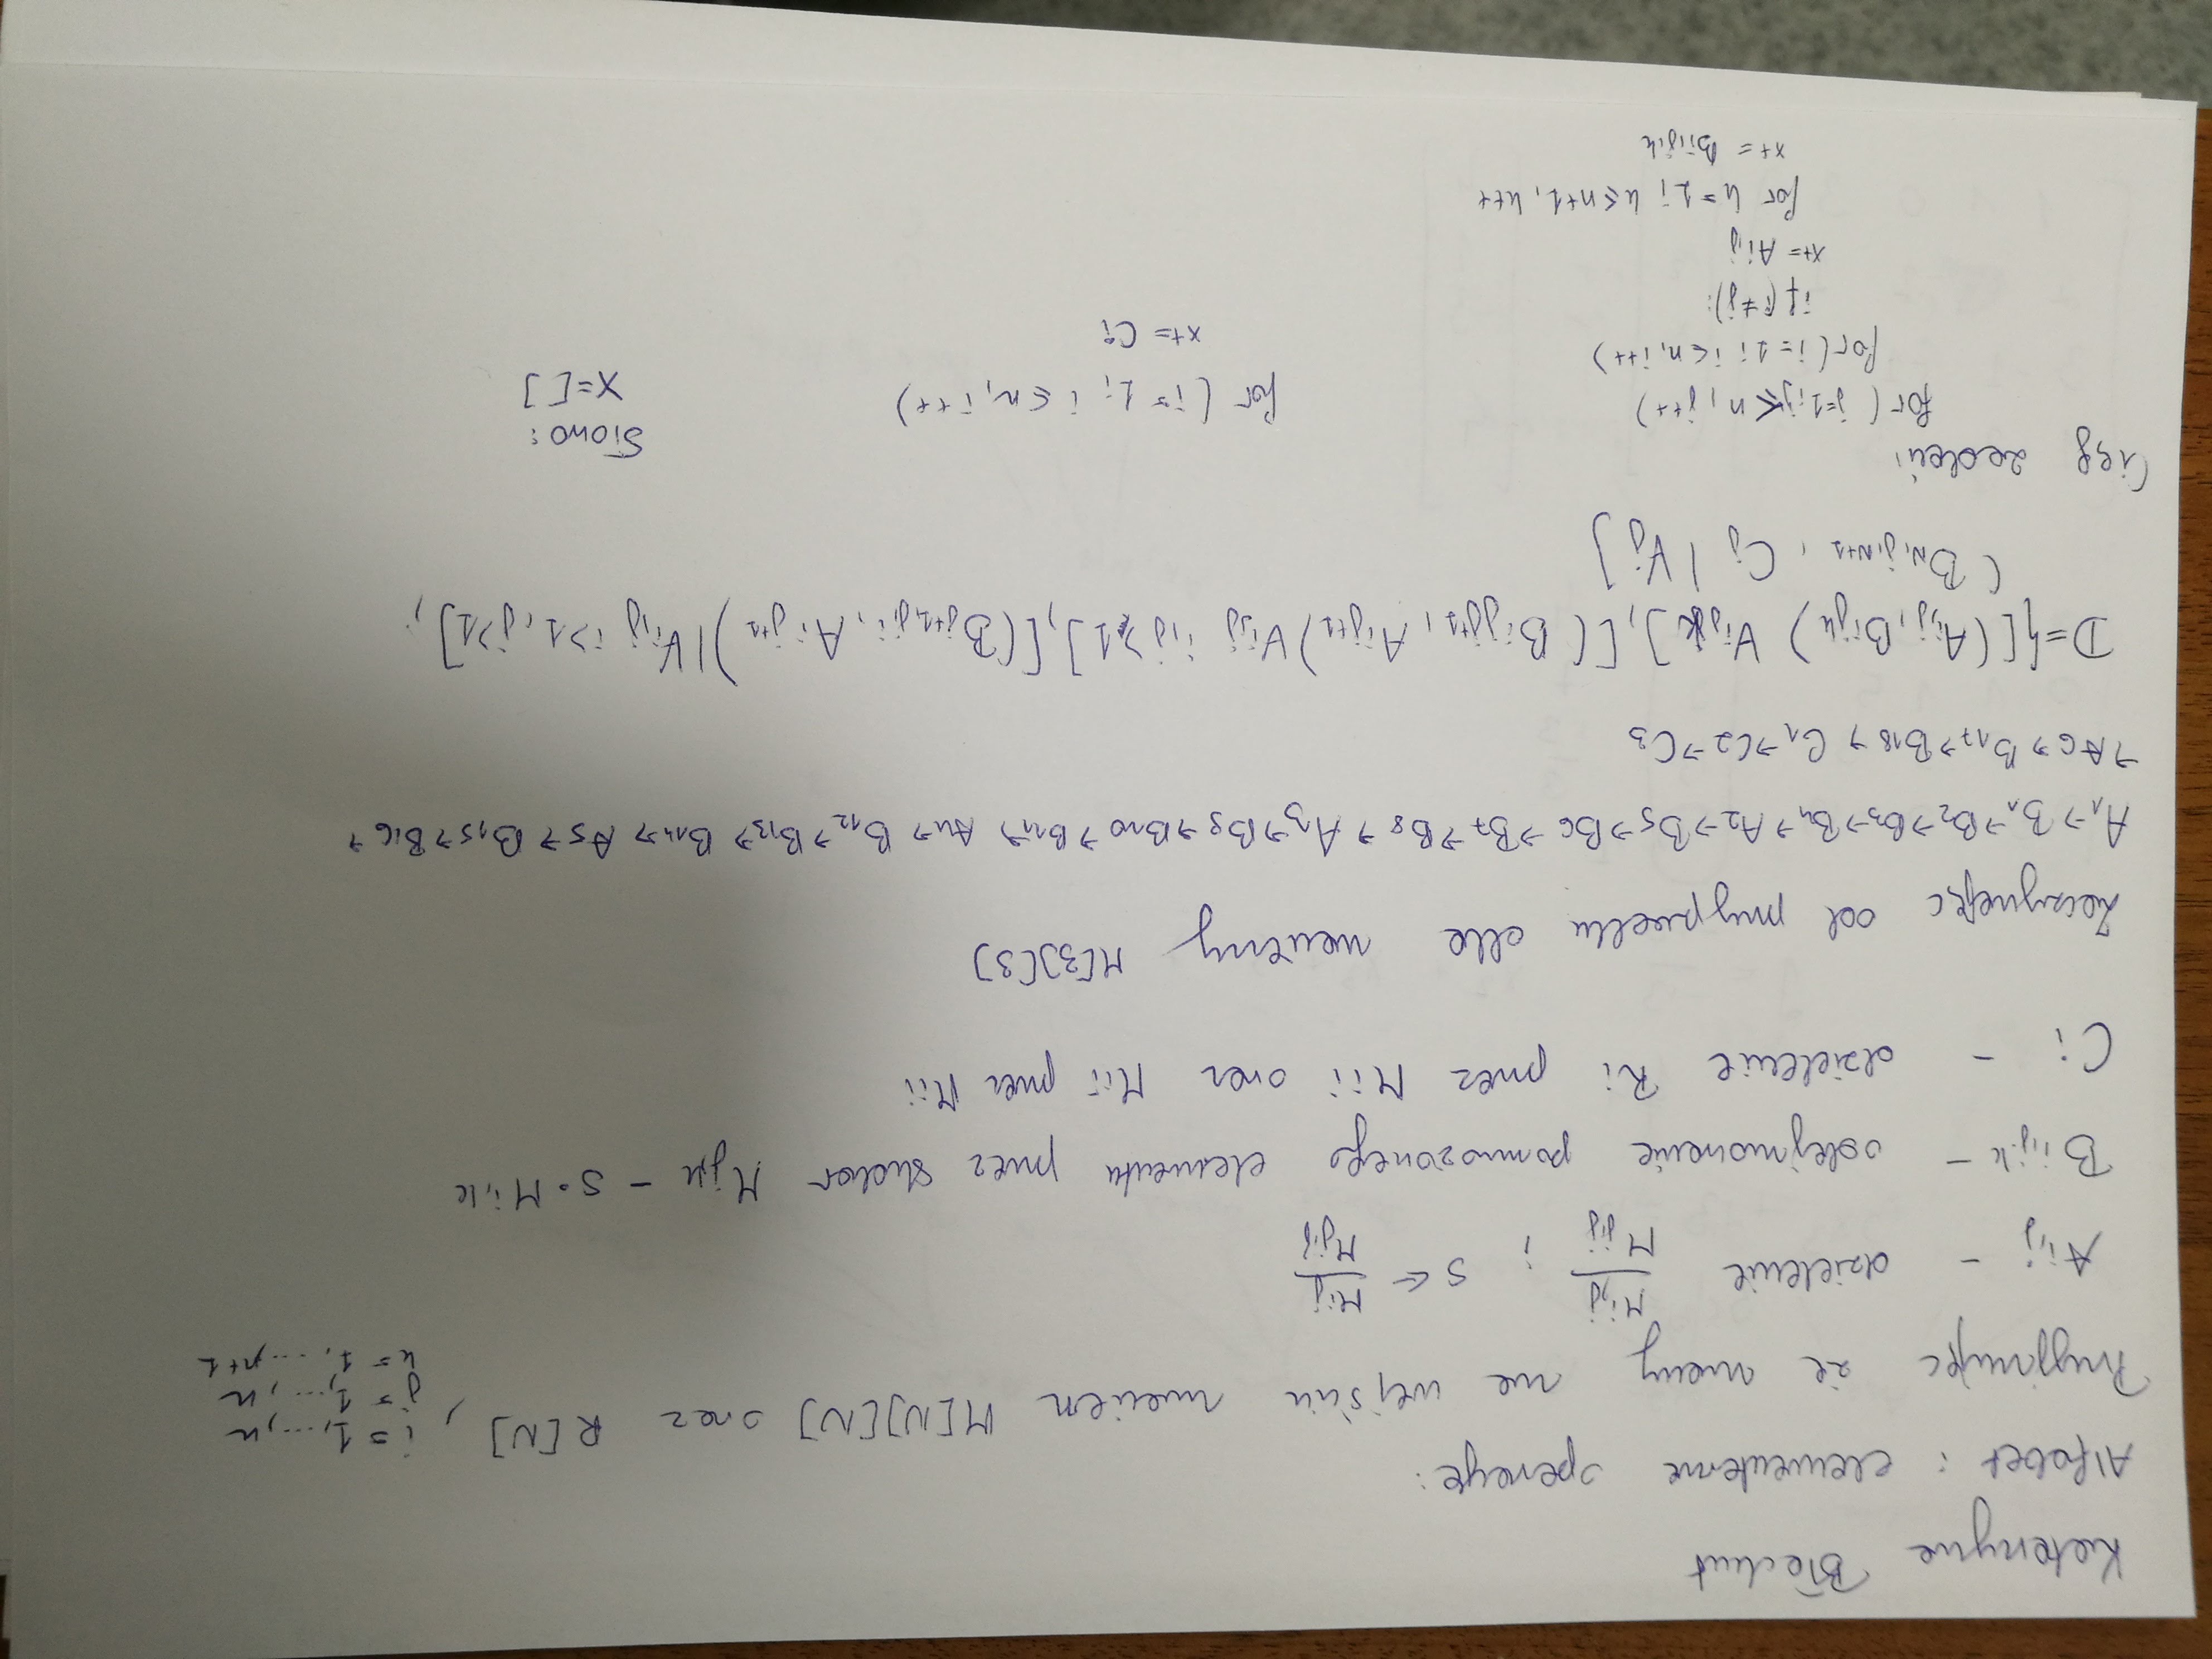 Katarzyna Błachut
Alfabet i elementarne operacje:
Przyjmując że mamy na wejściu macierz M[N][N] oraz R[N], i = 1,...,n
j = 1,...,n
k = 1,...,n+1
Ai,j - dzielenie Mi,j / Mj,j ; s ← Mij / Mj,j
Bi,j,k - odejmowanie pomnożonego elementu przez skalar Mj,k - s·Mi,k
Ci - dzielenie Ri przez Mii oraz Mii przez Mii
Zaczynając od przypadku dla macierzy M[3][3]
A1→B1→B2→B3→B4→A2→B5→B6→B7→B8→A3→B9→B10→B11→A4→B12→B13→B14→A5→B15→B16→
→A6→B17→B18→C1→C2→C3
D={[(Ai,j, Bijk) ∀i,j,k],[(Bijj+1, Aij+1)∀i,j i,j≥1],[(Bj+1,j,i, Ai j+1)|∀i,j i>1, j>1],
(BN,j,N+1, Cj | ∀j]
Ciąg zadań:
for( j=1; j≤n, j++)
for(i=1; i≤n, i++)
if(i≠j):
x+= Ai,j
for k=1; k≤n+1, k++
x+= Bi,j,k
for (i=1; i≤n, i++)
x+= Ci
Słowo:
X=[ ]